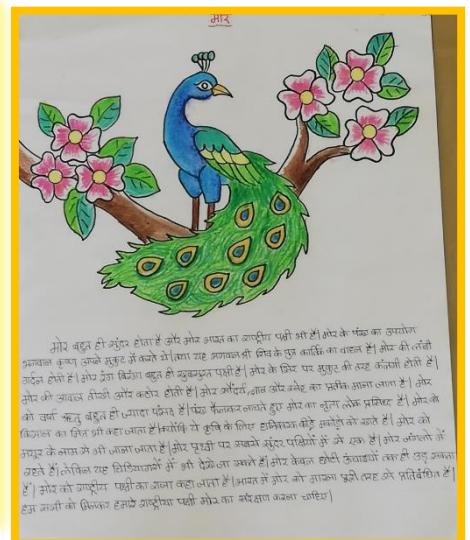 मोर
मोर बहुत ही सुंदर होता है और मोर भारत का राष्ट्रीय पक्षी भी है। मोर के पंख का उपयोग
भगवान कृष्ण अपने मुकुट में करते थे। तथा यह भगवान श्री शिव के पुत्र कार्तिक का वाहन है। मोर की लंबी
गर्दन होती है। मोर रंग बिरंगा बहुत ही खूबसूरत पक्षी है। मोर के सिर पर मुकुट की तरह कलगी होती है।
मोर की आवाज तीखी और कठोर होती है। मोर सौंदर्य, और स्नेह का प्रतीक माना जाता है। मोर
को वर्षा ऋतु बहुत ही ज्यादा पसंद है। पंख फैलाकर नाचते हुए मोर का नृत्य लोक प्रसिद्ध है। मोर को
किसान का मित्र भी कहा जाता है। क्योंकि ये कृषि के लिए हानिकारक कीड़े मकोड़ो को खाते है। मोर को
मयूर के नाम से भी जाना जाता है। मोर पृथ्वी पर सबसे सुंदर पक्षियों में से एक है। मोर जंगलों में
रहते हैं। लेकिन यह चिड़ियाघरों में भी देखे जा सकते हैं। मोर केवल छोटी ऊंचाइयों तक ही उड़ सकता
है। मोर को राष्ट्रीय पक्षी का राजा कहा जाता है। भारत में मोर को मारना पूरी तरह से प्रतिबंधित है।
हम सभी को मिलकर हमारे राष्ट्रीय पक्षी मोर का संरक्षण करना चाहिए।